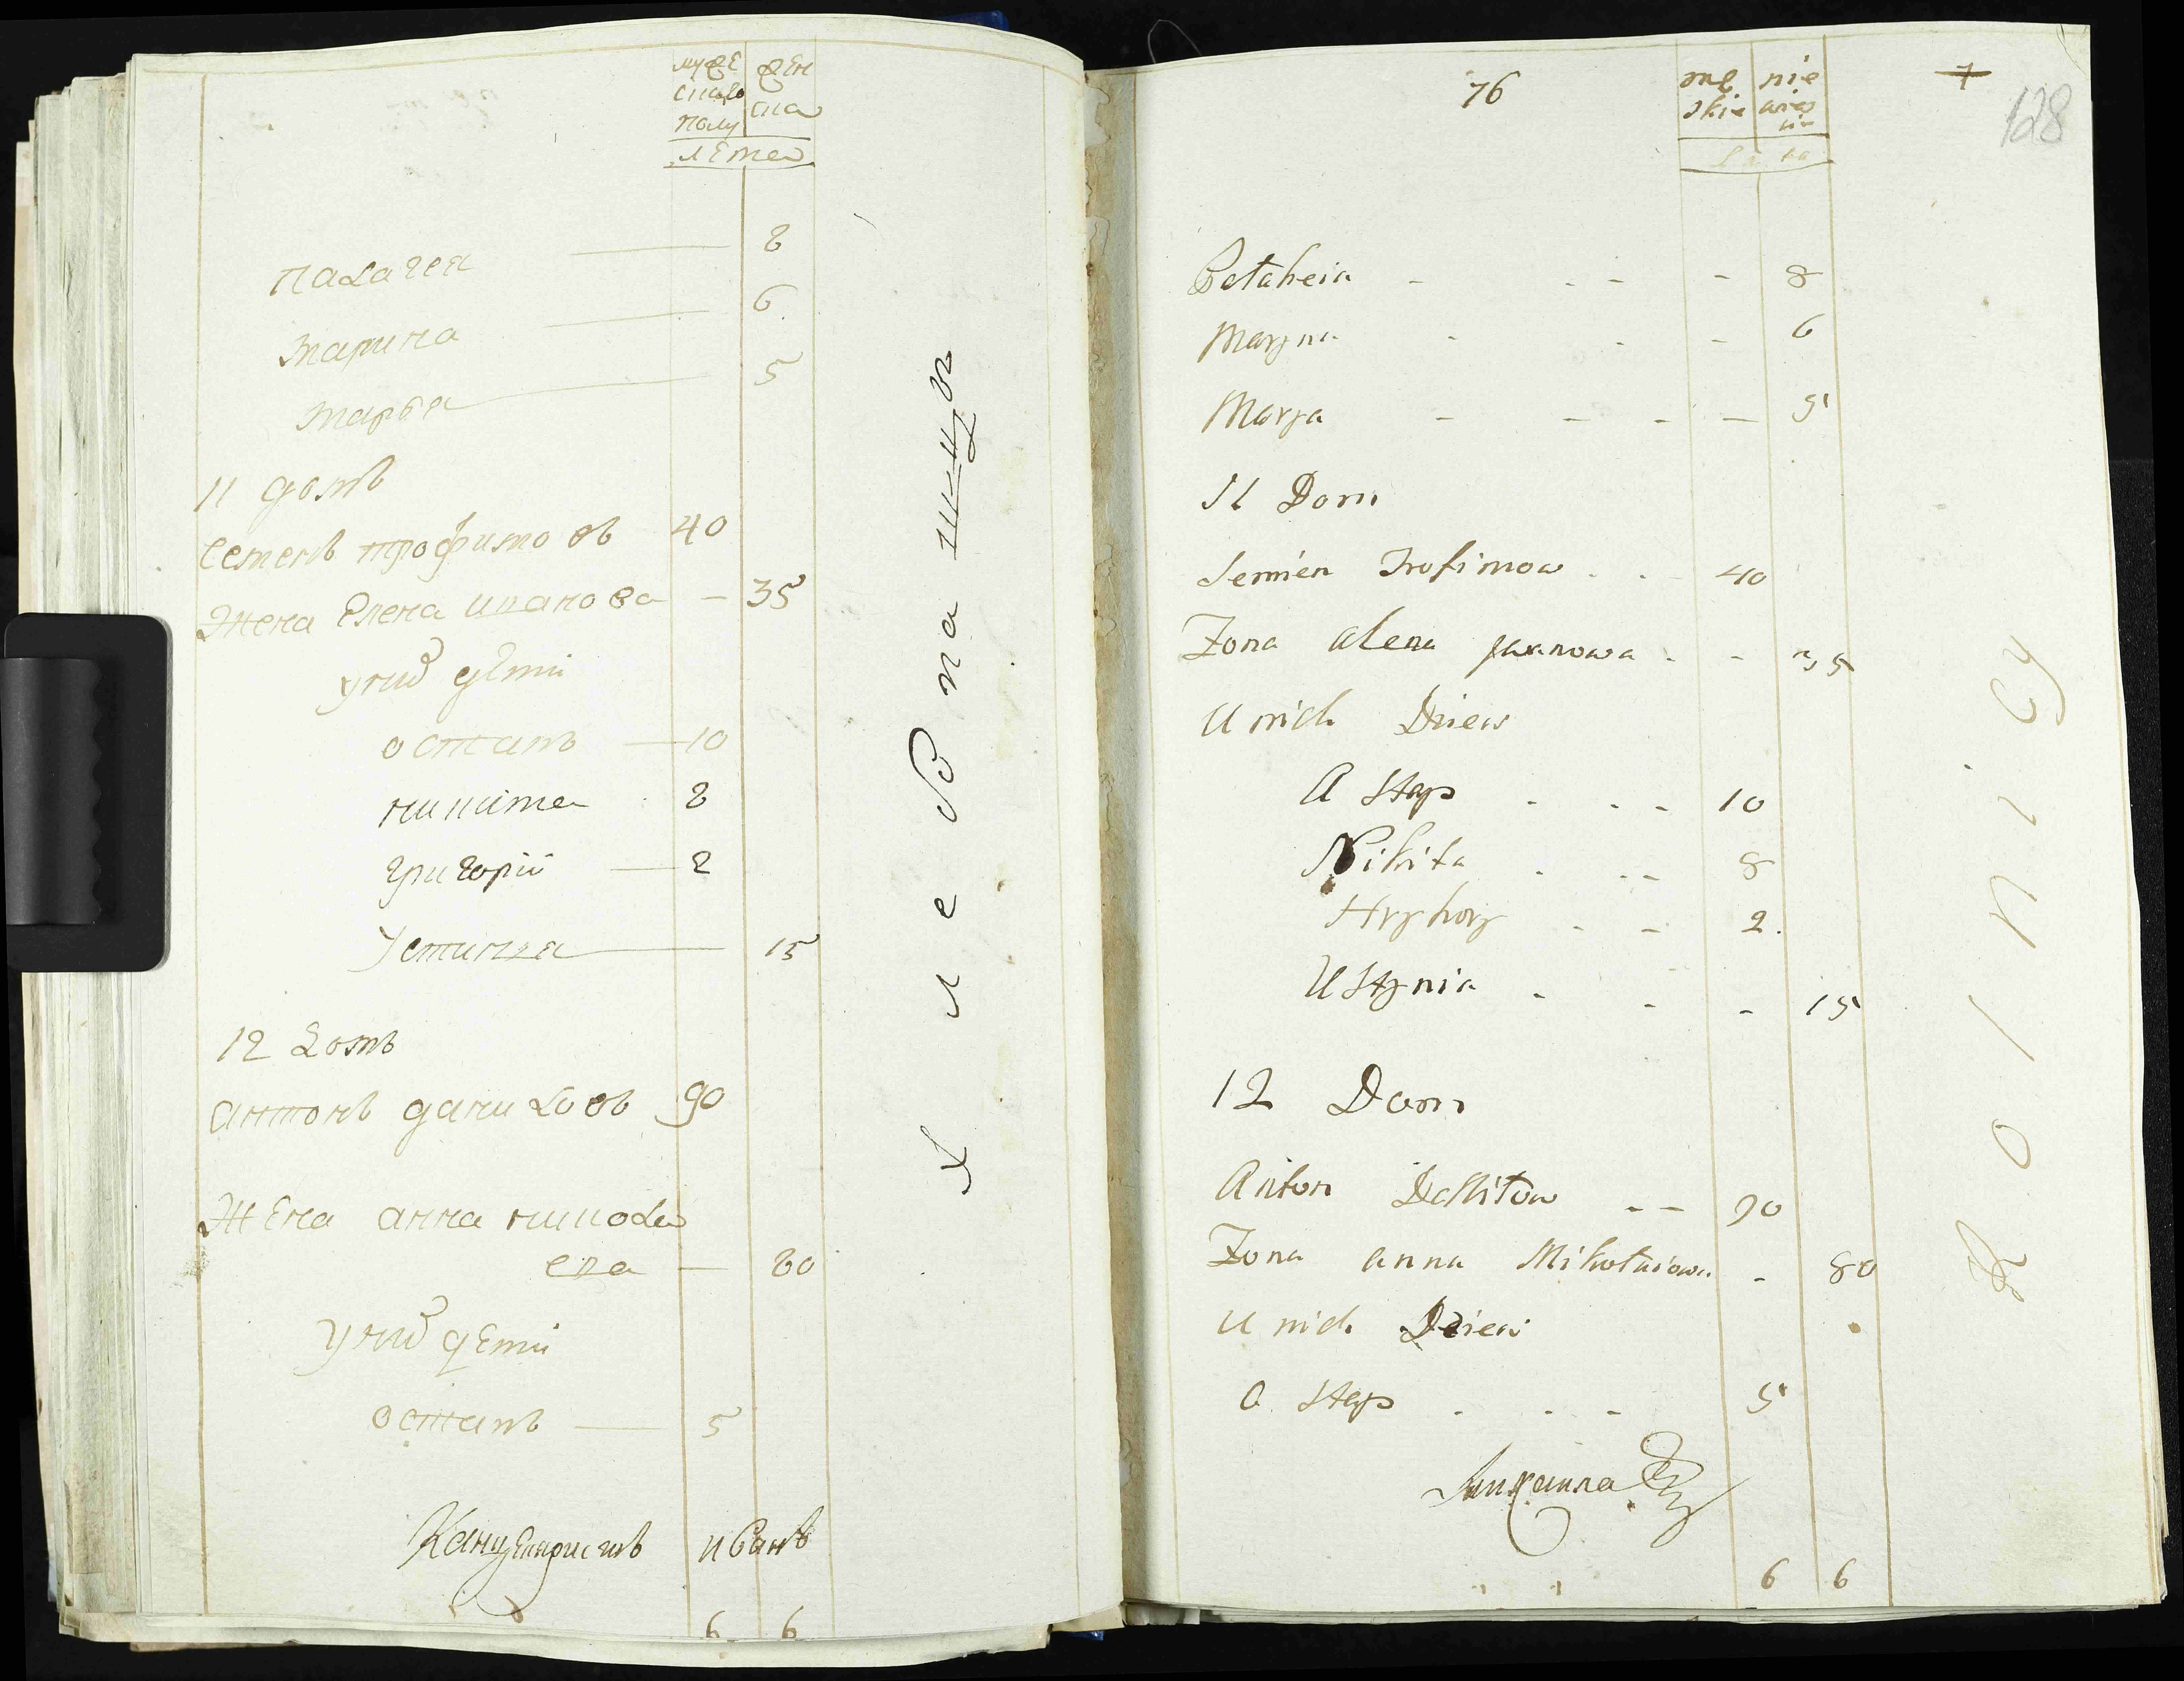 мужескаго полу
женска
летa
Палагея 8
Марина 6
Марья 5
11 домъ
Семенъ Трофимовъ 40
Жена Елена Иванова — 35
у них дети
Остапъ — 10
Никита 8
Григорiй — 2
Устинья — 15
12 домъ
Антонъ Даниловъ 90
Жена Анна Николаева — 80
у них дети
Остапъ — 5
Канцеляристъ Иванъ
6 6
хлебпашцъ
76
męskie
niewieście
lata
7
128
Pełaheia - - - - 8
Maryna - - - 6
Marya - - - - 5
11 Dom
Semien Trofimow - - 40
Zona Alena Jwanowa - - 35
U nich Dzieci
Astap - - - 10
Nikita - - - 8
Hryhory - - 2.
Ustynia - - - 15
12 Dom
Anton Daniłow - - 90
Zona Anna Mikołaiowa - 80
U nich Dzieci
Ostap - - - 5
6 6
Rolnicy